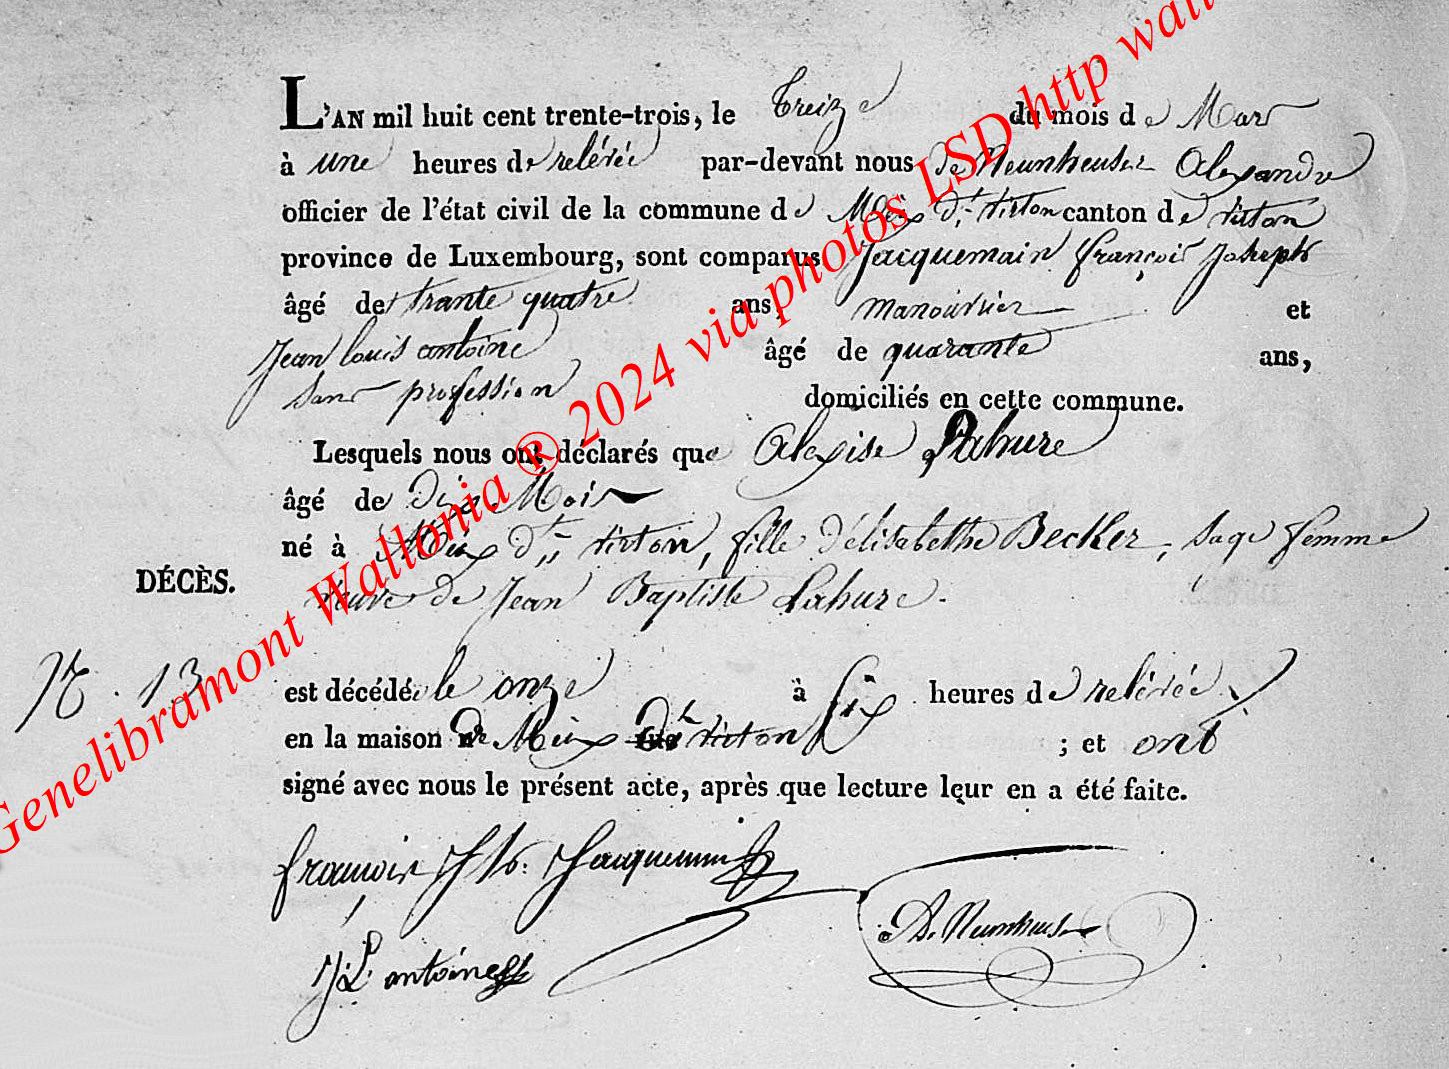 L'AN mil huit cent trente-trois, le treize du mois de Mars
à une heures de relévée par-devant nous de Neunheuser Alexandre
officier de l'état civil de la commune de Meix dt virton canton de virton
province de Luxembourg, sont comparus Jacquemain françois Joseph
âgé de trante quatre ans, manouvrier et
Jean louis antoine âgé de quarante ans,
sans profession domiciliés en cette commune.
Lesquels nous ont déclarés que Alexise Lahure
âgé de dix Mois
né à Meix dt virton, fille d'élisabethe Becker, sage femme
DÉCÈS.
veuve de Jean Baptiste Lahure.
N. 13
est décédée le onze à six heures de relévée
en la maison de Meix dt virton ; et ont
signé avec nous le présent acte, après que lecture leur en a été faite.
françois Jph. Jacquemin
A. Neunheuser
J. L. antoine
Genelibramont Wallonia ® 2024 via photos LSD http wall